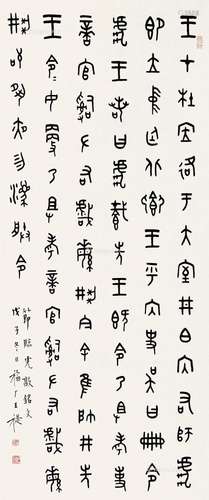 王才杜居洛于大室井白内右師虎
即立中廷北卿王乎内史吳曰冊令
虎王若曰虎載先王既令乃且考事
啻官𤔲左右戲緐荊今余隹帥井先
王令令女更乃且考啻官𤔲左右戲緐
荊苟夙夜勿灋朕令
節臨虎敦銘文
戊子冬日福厂王禔